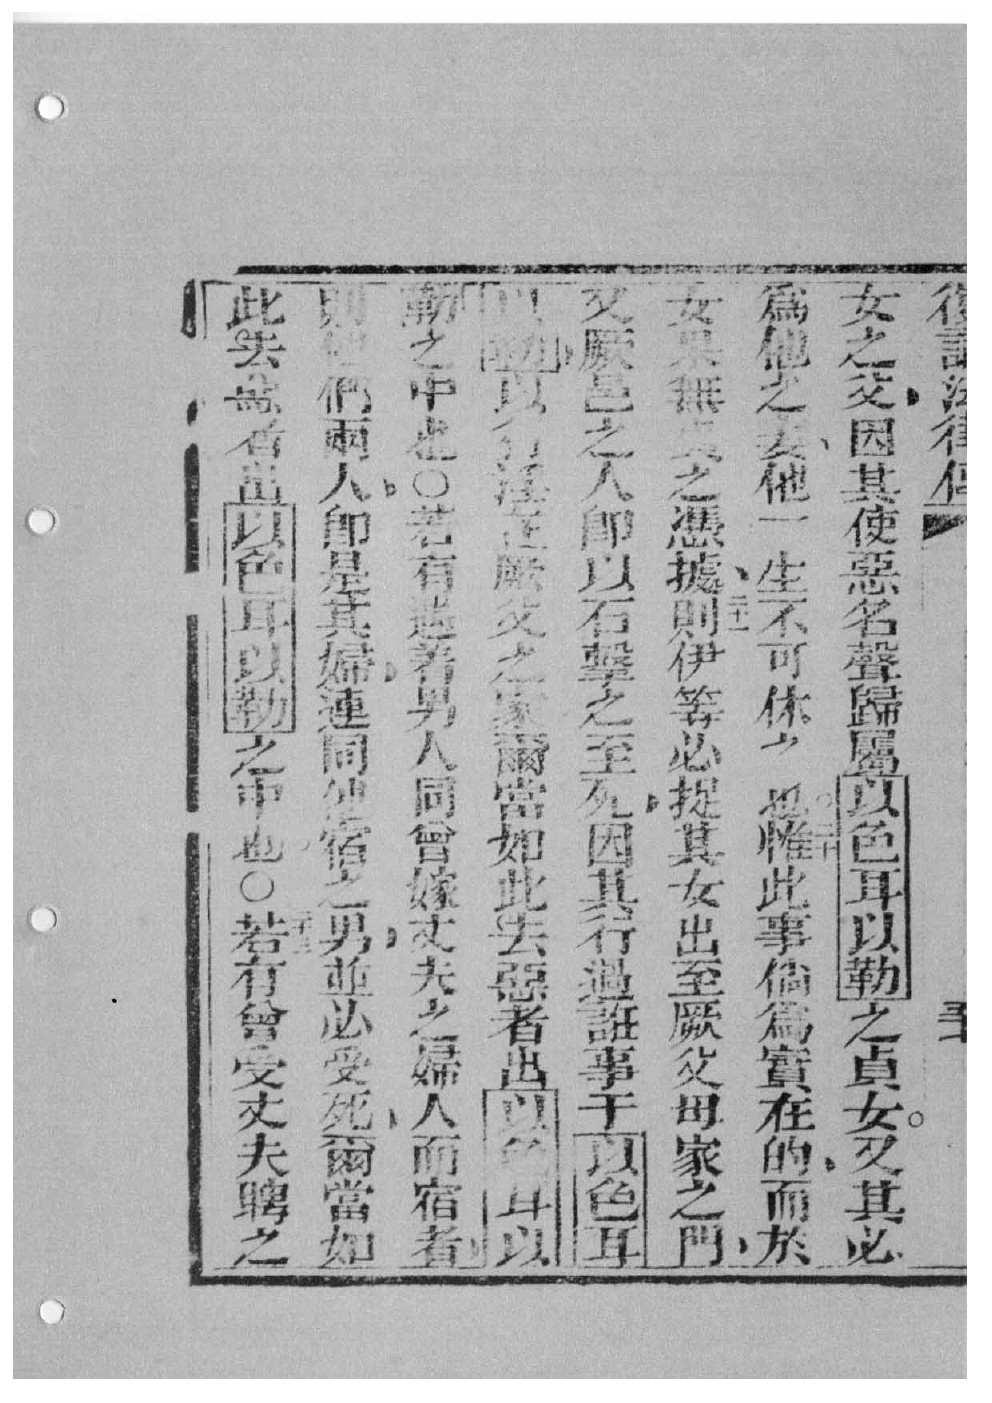 復講法律傳
女之父因其使惡名聲歸屬以色耳以勒之貞女又其必
為他之妻他一生不可休之也。二十惟此事倘為實在的而於
女果無貞之憑據二十一則伊等必捉其女出至厥父母家之門
又厥邑之人即以石擊之至死因其行過誑事于以色耳
以勒以行淫在厥父之家爾當如此去惡者出以色耳以
勒之中也〇若有遇着男人同曾嫁丈夫之婦人而宿者
則他們兩人即是其婦連同他宿之男並必受死爾當如
此去惡者出以色耳以勒之中也〇若有曾受丈夫聘之